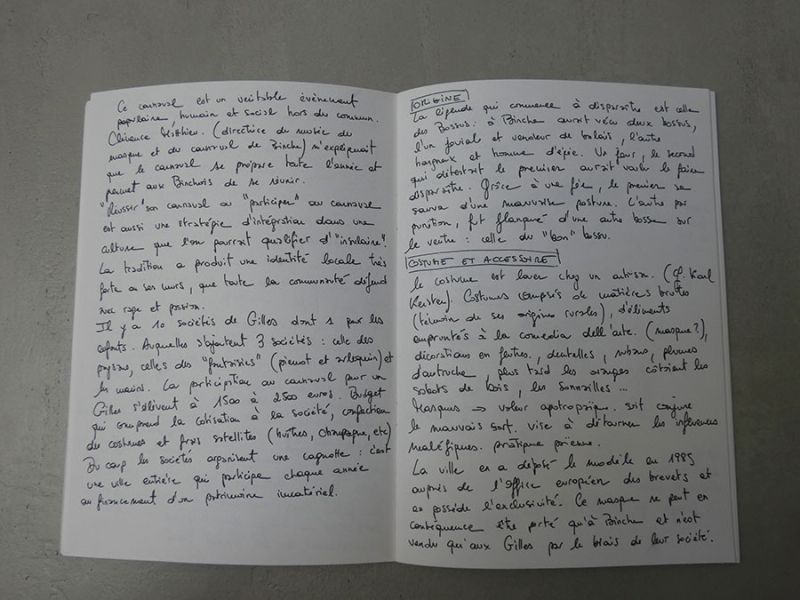 Ce carnaval est un véritable évènement
populaire, humain et social hors du commun.
Clémence Matthieu. (directrice du musée du
masque et du carnaval de Binche) m'expliquait
que le carnaval se prépare toute l'année et
permet aux Binchois de se réunir.
"Réussir" son carnaval ou "participer" au carnaval
est aussi une stratégie d'intégration dans une
culture que l'on pourrait qualifier d'"insulaire".
La tradition a produit une identité locale très
forte a ses murs, que toute la communauté défend
avec rage et passion.
Il y a 10 sociétés de Gilles dont 1 par les
enfants. Auxquelles s'ajoutent 3 sociétés : celle des
paysans, celles des "fantaisies" (pierrot et arlequin) et
les marins. La participation au carnaval pour un
Gilles s'élèvent à 1500 à 2500 euros. Budget
qui comprend la cotisation à la société, confection
des costumes et frais satellites (huîtres, champagne, etc)
Du coup les sociétés organisent une cagnotte : c'est
une ville entière qui participe chaque année
au financement d'un patrimoine immatériel.
ORIGINE
La légende qui commence à disparaître est celle
des Bossus. à Binche aurait vécu deux bossus,
l'un jovial et vendeur de balais, l'autre
hargneux et homme d'épée. Un jour, le second
qui détestait le premier aurait voulu le faire
disparaître. Grâce à une fée, le premier se
sauva d'une mauvaise posture. L'autre par
punition, fut flanqué d'une autre bosse sur
le ventre : celle du "bon" bossu.
COSTUME ET ACCESSOIRE
le costume est louer chez un artisan. (cf. Karl
Kersten). Costumes composés de matières brutes
(témoin de ses origines rurales), d'éléments
empruntés à la comedia dell'arte. (masque?),
décorations en feutres., dentelles, rubans, plumes
d'autruche, plus tard les oranges côtoient les
sabots de bois, les sonnailles ...
Masques → valeur apotropaïque. soit conjure
le mauvais sort. vise à détourner les influences
maléfiques. pratique païenne.
La ville en a déposé le modèle en 1985
auprès de l'Office européen des brevets et
en possède l'exclusivité. Ce masque ne peut en
conséquence être porté qu'à Binche et n'est
vendu qu'aux Gilles par le biais de leur société.